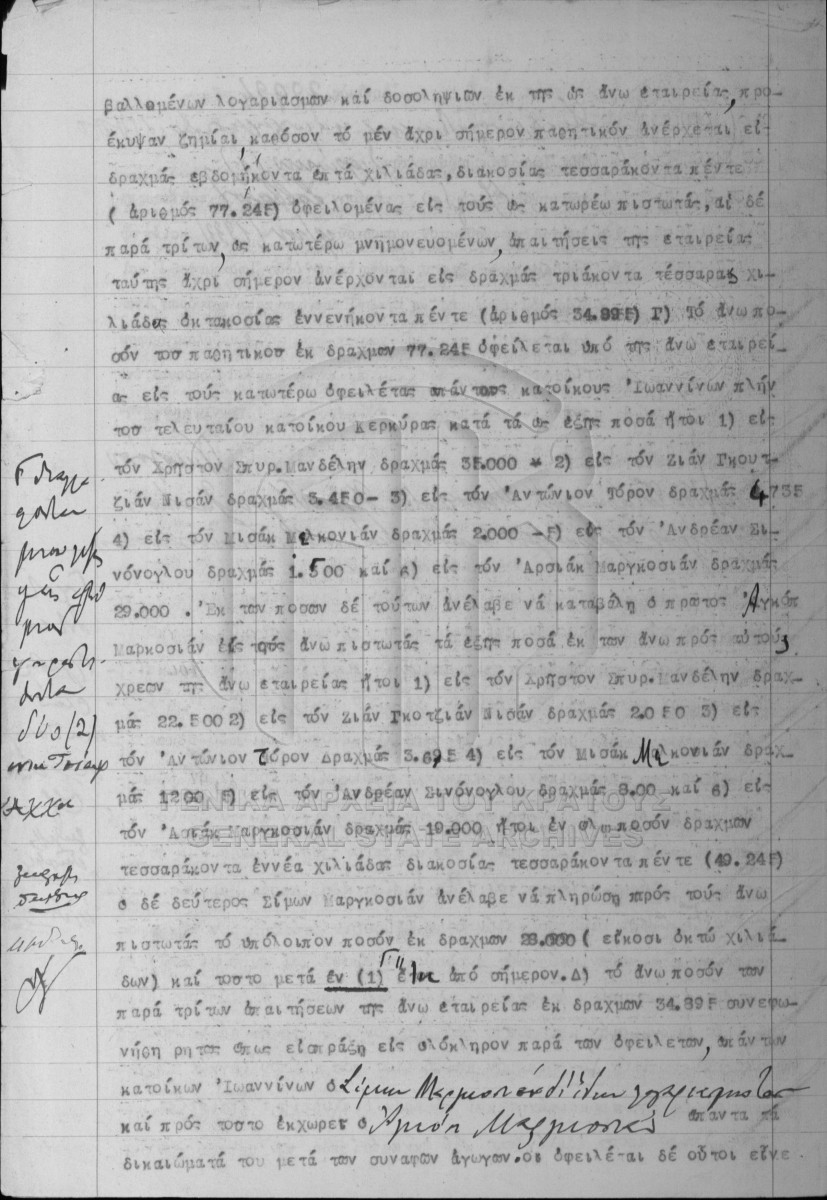 βαλλομένων λογαριασμων καί δοσοληψιων έκ της ώς άνω εταιρείας, προ-
έκυψαν ζημίαι καθόσον τό μέν άχρι σήμερον παθητικόν άνέρχεται είς
δραχμάς εβδομήκοντα επτά χιλιάδας, διακοσίας τεσσαράκοντα πέντε
( άριθμός 77.245) όφειλομένας είς τούς ως κατωρέω πιστωτάς, αί δέ
παρά τρίτων, ώς κατωτέρω μνημονευομένων, άπαιτήσεις της εταιρείας
ταύτης άχρι σήμερον άνέρχονται είς δραχμάς τριάκοντα τέσσαρας χι-
λιάδας οκτακοσίας έννενήκοντα πέντε (άριθμός 34.895) Γ) Τό άνω πο-
σόν του παθητικου έκ δραχμων 77.245 όφείλεται υπό της άνω εταιρεί-
ας είς τούς κατωτέρω όφειλέτας άπάντας κατοίκους Ίωαννίνων πλήν
του τελευταίου κατοίκου Κερκύρας κατά τά ως έξης ποσά ήτοι 1) είς
τόν Χρηστον Σπυρ.Μανδέλην δραχμάς 35.000 - 2) είς τόν Ζιάν Γκουτ-
ζιάν Μισάν δραχμάς 3.450- 3) είς τόν Άντώνιον Τόρον δραχμάς 4735
4) είς τόν Μισάκ Μελκονιάν δραχμάς 2.000 -5) είς τόν Άνδρέαν Σι-
νόνογλου δραχμάς 1.500 καί 6) είς τόν Αρσιάκ Μαργκοσιάν δραχμάς
29.000 . Έκ των ποσων δέ τούτων άνέλαβε νά καταβάλη ο πρωτος Άγκόπ
Μαρκοσιάν είς τούς άνω πιστωτάς τά έξης ποσά έκ των άνω πρός αύτούς
χρεων της άνω εταιρείας ήτοι 1) είς τόν Χρηστον Σπυρ.Μανδέλην δραχ-
μάς 22.500 2) είς τόν Ζιάν Γκοτζιάν Μισάν δραχμάς 2.050 3) είς
τόν Άντώνιον Τόρον Δραχμάς 3.695 4) είς τόν Μισάκ Μελκονιάν δραχ-
μάς 1200 5) είς τόν Άνδρέαν Σινόνογλου δραχμάς 8.00 καί 6) είς
τόν Ασιάκ Μαργκοσιάν δραχμάς 19.000 ήτοι έν ολω ποσόν δραχμων
τεσσαράκοντα έννέα χιλιάδας διακοσίας τεσσαράκοντα πέντε (49.245)
ο δέ δεύτερος Σίμων Μαργκοσιάν άνέλαβε νά πληρώση πρός τούς άνω
πιστωτάς τό υπόλοιπον ποσόν έκ δραχμων 28.000 ( είκοσι όκτώ χιλιά-
δων) καί τουτο μετά έν (1) έτη άπό σήμερον. Δ) τό άνω ποσόν των
παρά τρίτων άπαιτήσεων της άνω εταιρείας έκ δραχμων 34.895 συνεφω-
νήθη ρητως όπως είσπράξη είς ολόκληρον παρά των όφειλετων, άπάντων
κατοίκων Ίωαννίνων ο Σίμων
καί πρός τουτο έκχωρει ο Άγκόπ άπαντα τά
δικαιώματά του μετά των συναφων άγωγων. οι όφειλέται δέ ούτοι είνε
δύο (2)
ΓΕΝΙΚΑ ΑΡΧΕΙΑ ΤΟΥ ΚΡΑΤΟΥΣ
GENERAL STATE ARCHIVES